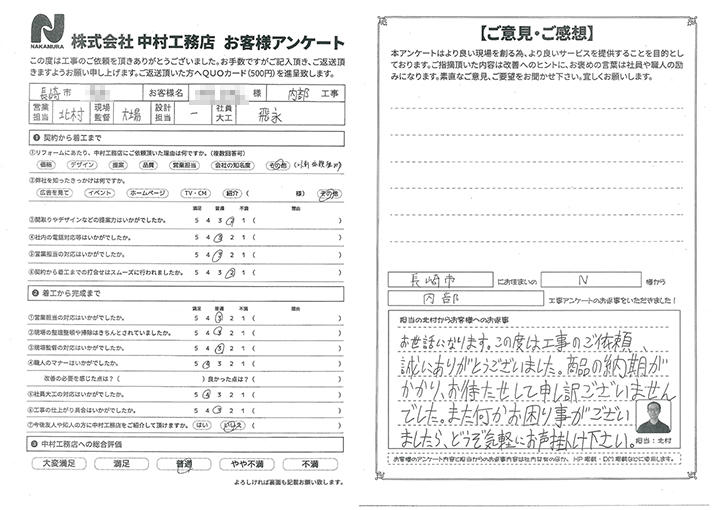 N
NAKAMURA
株式会社 中村工務店 お客様アンケート
この度は工事のご依頼を頂きありがとうございました。お手数ですがご記入頂き、ご返送頂
きますようお願い申し上げます。ご返送頂いた方へQUOカード(500円)を進呈致します。
長崎市
お客様名
様
内部 工事
営業担当 北村 現場監督 大場 設計担当 ー 社員大工 飛永
❶ 契約から着工まで
①リフォームにあたり、中村工務店にご依頼頂いた理由は何ですか。(複数回答可)
価格 デザイン 提案 品質 営業担当 会社の知名度 その他
②弊社を知ったきっかけは何ですか。
広告を見て イベント ホームページ TV・CM 紹介( 様) その他
満足 普通 不満 理由
③間取りやデザインなどの提案力はいかがでしたか。 5 4 3 2 1 ( )
④社内の電話対応等はいかがでしたか。 5 4 3 2 1 ( )
⑤営業担当の対応はいかがでしたか。 5 4 3 2 1 ( )
⑥契約から着工までの打合せはスムーズに行われましたか。 5 4 3 2 1 ( )
❷ 着工から完成まで
満足 普通 不満 理由
①営業担当の対応はいかがでしたか。 5 4 3 2 1 ( )
②現場の整理整頓や掃除はきちんとされていましたか。 5 4 3 2 1 ( )
③現場監督の対応はいかがでしたか。 5 4 3 2 1 ( )
④職人のマナーはいかがでしたか。 5 4 3 2 1 ( )
改善の必要を感じた点は?( )良かった点は?( )
⑤社員大工の対応はいかがでしたか。 5 4 3 2 1 ( )
⑥工事の仕上がり具合はいかがでしたか。 5 4 3 2 1 ( )
⑦今後友人や知人の方に中村工務店をご紹介して頂けますか。 はい いいえ ( )
❸ 中村工務店への総合評価
大変満足 満足 普通 やや不満 不満
よろしければ裏面も記載お願い致します。
【ご意見・ご感想】
本アンケートはより良い現場を創る為、より良いサービスを提供することを目的とし
ております。ご指摘頂いた内容は改善へのヒントに、お褒めの言葉は社員や職人の励
みになります。素直なご意見、ご要望をお聞かせ下さい。宜しくお願いします。
長崎市 にお住まいの N 様から
内部 工事アンケートのお返事をいただきました!
担当の北村からお客様へのお返事
お世話になります。この度は工事のご依頼、
誠にありがとうございました。商品の納期が
かかり、お待たせして申し訳ございません
でした。また何かお困り事がござい
ましたら、どうぞ気軽にお声掛け下さい。
担当:北村
お客様のアンケート内容と担当からのお返事内容は社内共有のほか、HP掲載・DM掲載などに使用します。